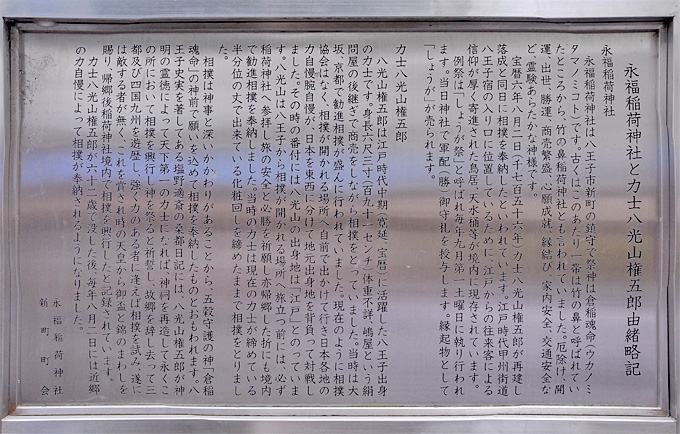 永福稲荷神社と力士八光山権五郎由緒略記
永福稲荷神社
永福稲荷神社は八王子市新町の鎮守で祭神は倉稲魂命（ウカノミ
タマノミコト）です。古くはこのあたり一帯は竹の鼻と呼ばれてい
たところから、竹の鼻稲荷神社とも言われていました。厄除け、開
運、出世、勝運、商売繁盛、心願成就、縁結び、家内安全、交通安全な
ど、霊験あらたかな神様です。
宝暦六年八月二日（千七百五十六年）力士八光山権五郎が再建し
落成と同日に相撲を奉納したといわれています。江戸時代甲州街道
八王子宿の入り口に位置しているために、江戸からの往来客による
信仰が厚く寄進された鳥居、天水桶等が境内に現存されています。
例祭は「しょうが祭」と呼ばれ毎年九月第一土曜日に執り行われ
ます。当日神社で軍配（勝）御守札を授与します。縁起物として
「しょうが」が売られます。
力士八光山権五郎
八光山権五郎は江戸時代中期（寛延、宝暦）に活躍した八王子出身
の力士です。身長六尺三寸（百九十一センチ）体重不詳、嶋屋という絹
問屋の後継ぎで商売をしながら相撲をとっていました。当時は大
坂、京都で勧進相撲が盛んに行われていました。現在のように相撲
協会はなく、相撲が開かれる場所へ自前で出かけて行き日本各地の
力自慢腕自慢が、日本を東西に分けて地元出身地を背負って対戦し
ました。その時の番付には八光山の出身地は「江戸」とのっていま
す。八光山は八王子から相撲が開かれる場所へ旅立つ前には、必ず
稲荷神社へ参拝し旅の安全と必勝を祈願し、亦帰郷した折にも境内
で勧進相撲を奉納しました。当時の力士は現在の力士が締めている
半分位の丈で出来ている化粧回しを締めたままで相撲をとりまし
た。
相撲は神事と深いかかわりがあることから、五穀守護の神「倉稲
魂命」の神前で願いを込めて相撲を奉納したものとおもわれます。八
王子史実を著してある塩野適斎の桑都日記には、八光山権五郎が神
明の霊徳によって天下第一の力士になれば、神祠を再造して永くこ
の所において相撲を興行し神を祭ると祈誓し、故郷を辞し去って三
都及び四国九州を遊歴し、強く力のある者に逢えば相撲を試み、遂に
は敵する者が無く、これを賞され時の天皇から御盃と錦のまわしを
賜り、帰郷後稲荷神社境内で相撲を興行したと記録されています。
力士八光山権五郎が六十二歳で没した後、毎年八月二日には近郷
の力自慢によって相撲が奉納されるようになりました。
永福稲荷神社
新町町会